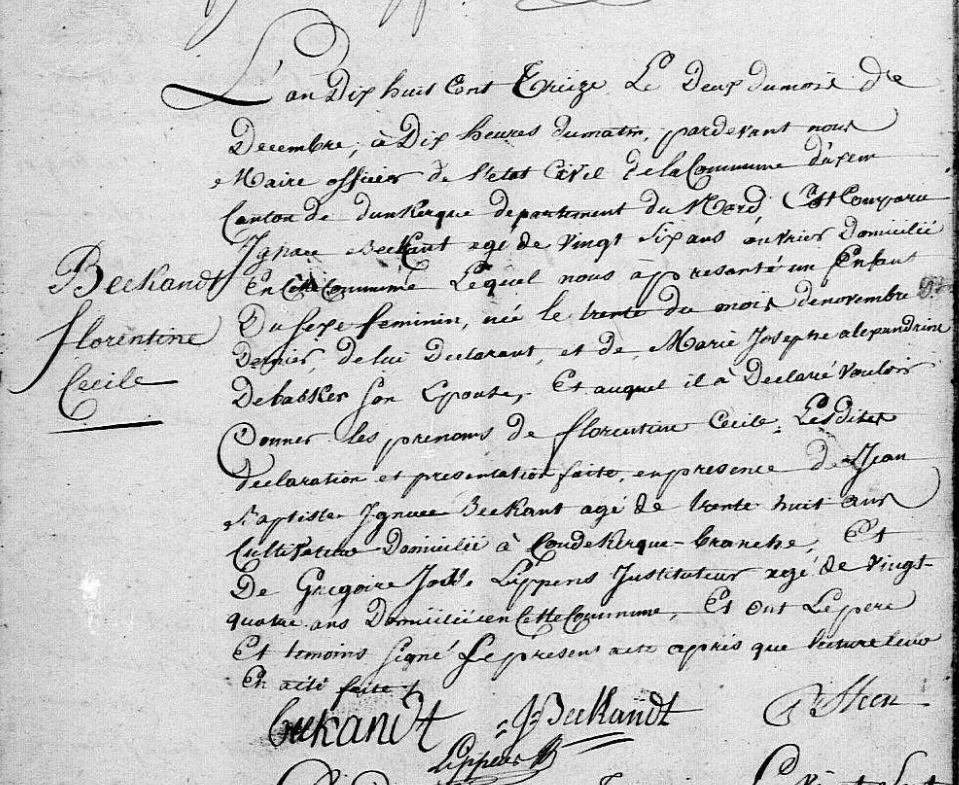 L'an Dix huit Cent Treize Le Deux du mois de
Decembre, à Dix heures du matin, pardevant nous
Maire officier de l'etat Civil de la Commune
Canton de dunkerque departement du Nord Est Comparu
Ignace Beckant agé de vingt Six ans ouvrier domicilié
En Cette Commune Lequel nous a presanté un Enfant
Du sexe feminin, née le trente du mois de novembre
Dernier, de lui Declarant, et de Marie Josephe alexandrine
Debakker son Epouse, Et auquel il à Declaré vouloir
Donner les prenoms de florentine Cecile, Lesdites
Declaration et presentation faite, en presence de Jean
Baptiste Ignace Beckant agé de trente huit ans
Cultivateur Domicilié à Coudekerque-branche, Et
De Gregoire Lippens Instituteur agé de vingt-
quatre ans Domicilié en Cette Commune, Et ont Le pere
Et temoins signé Le present acte après que lecture leur
En a été faite
Beckandt
florentine
Cecile
beckandt J. Beckandt
Lippens